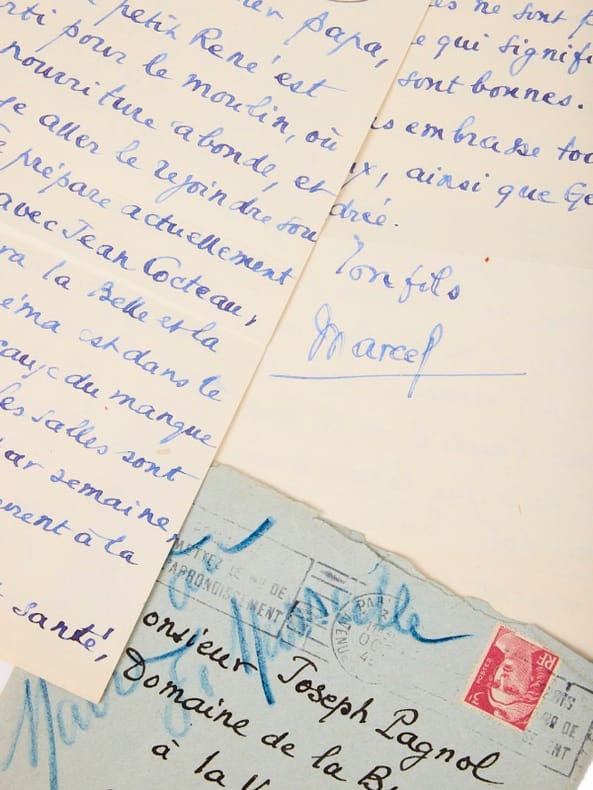 papa,
petit René est
rti pour le moulin, où
nourriture abonde, et
aller le rejoindre sou
prépare actuellement
avec Jean Cocteau,
ra la Belle et la
éma est dans le
cause du manque
les salles sont
par semaine,
vrent à la
santé,
es ne sont p
e qui signifi
sont bonnes.
s embrasse tou
x, ainsi que Ge
drée.
Ton fils
Marcel
METTEZ LE N° DE
ARRONDISSEMENT
PARIS
AVENUE
POSTES
RF
N° DE
onsieur Joseph Pagnol
Domaine de la B
à la V